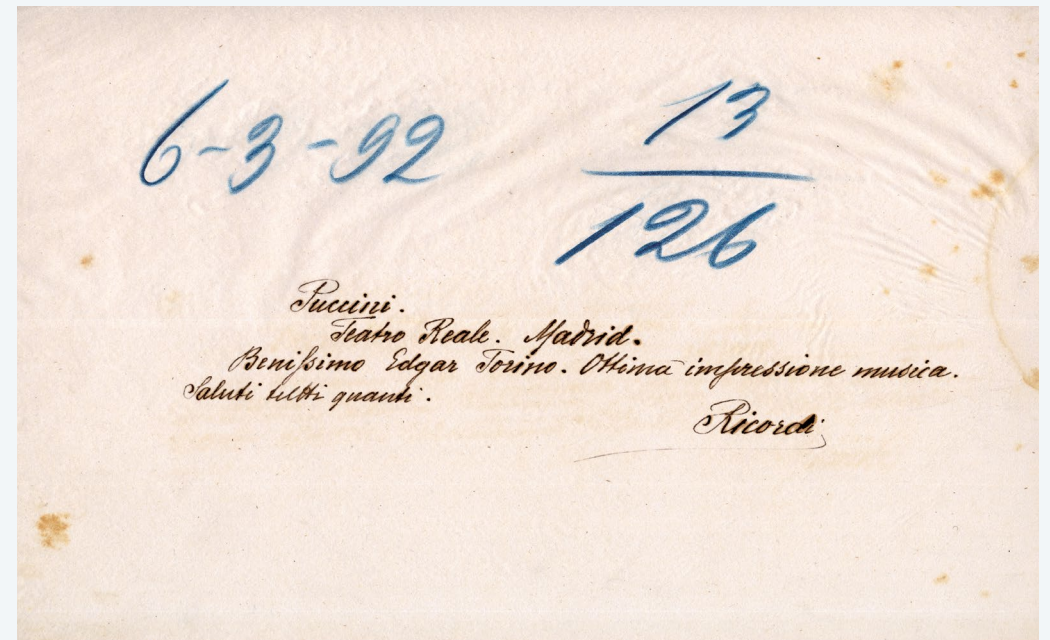 6-3-92
13
126
Puccini.
Teatro Reale. Madrid.
Benissimo Edgar Torino. Ottima impressione musica.
Saluti tutti quanti.
Ricordi